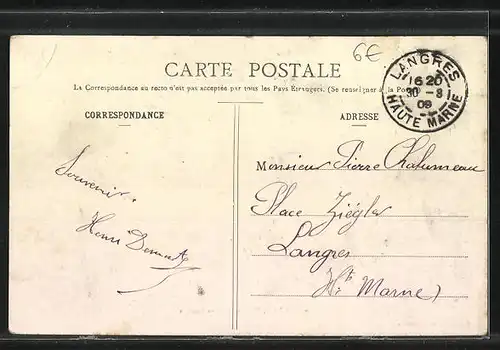 6€
CARTE POSTALE
La Correspondance au recto n'est pas acceptée par tous les Pays Étrangers. (Se renseigner à la Poste
LANGRES
16 20
30 - 8
09
HAUTE MARNE
CORRESPONDANCE
Souvenir.
Henri
ADRESSE
Monsieur Pierre Chalumeau
Place Ziégler
Langres
Hte Marne